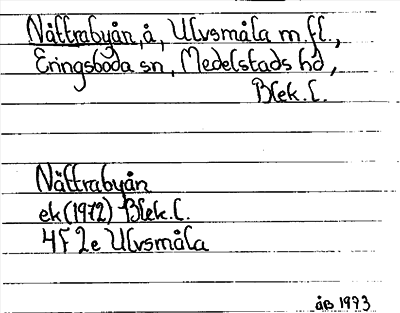 Nättrabyån, å, Ulvsmåla m.fl.,
Eringsboda sn, Medelstads hd,
Blek. l.
Nättrabyån
ek (1972) Blek. l.
4F 2e Ulvsmåla
åB 1973